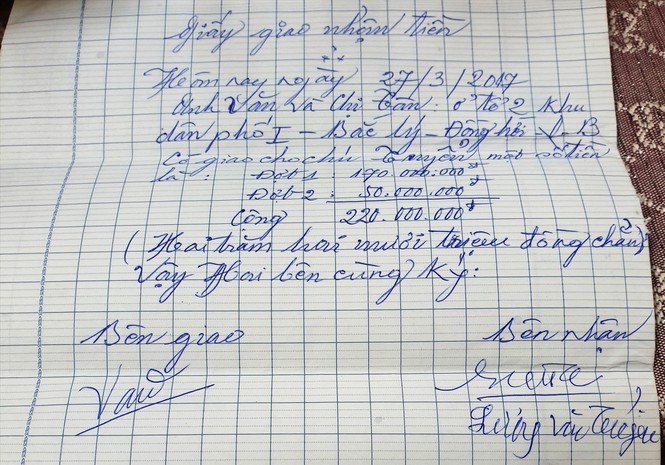 Giấy giao nhận tiền
Hôm nay ngày 27/3/2017
Anh Văn và Chị Lan: ở tổ 2 Khu
dân phố I - Bắc lý - Đồng hới - Q-B
Có giao cho chú Tuyển một số tiền
là: Đợt 1: 170.000.000đ
Đợt 2: 50.000.000đ
Cộng 220.000.000đ
(Hai trăm hai mươi triệu đồng chẵn)
Vậy Hai bên cùng Ký:
Bên giao Bên nhận
Văn
Văn